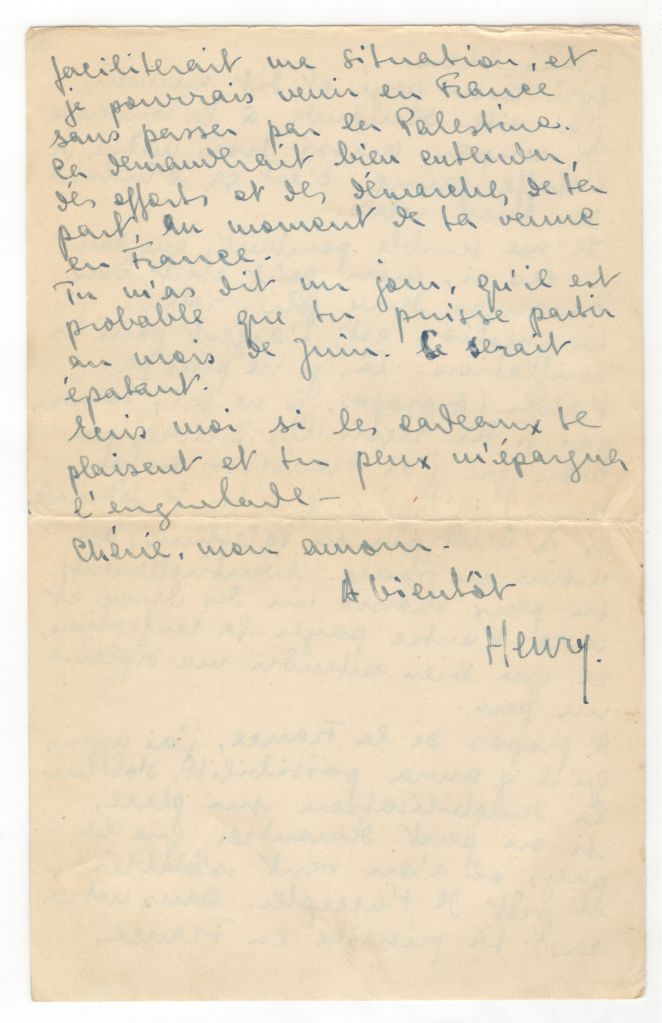 faciliterait ma situation, et
je pourrais venir en France
sans passer par la Palestine.
Ça demanderait bien entendu,
des efforts et des démarches de ta
part, au moment de ta venue
en France.
Tu m'as dit un jour, qu'il est
probable que tu puisse partir
au mois de Juin. Ce serait
épatant.
Ecris moi si les cadeaux te
plaisent et tu peux m'épargner
l'engueulade –
Chérie, mon amour.
A bientôt
Henry.